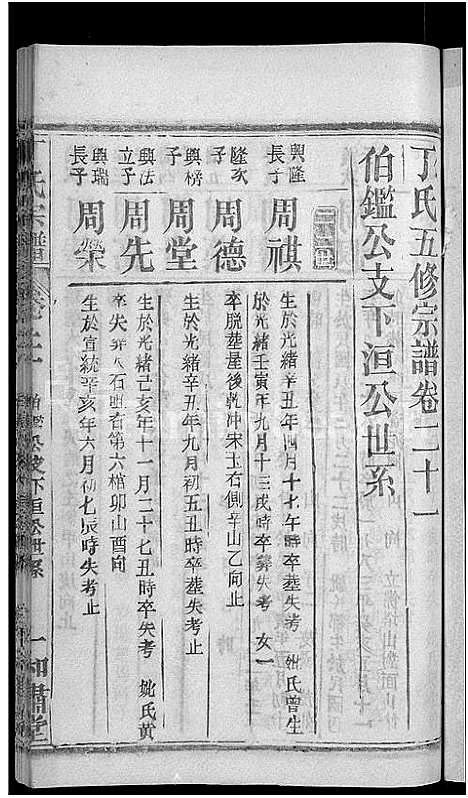 丁氏五修宗譜卷二十一
伯鑑公支下洹公世系
三十三世
興隆長子
周祺
生於光緒辛丑年四月十七午時卒塟失考 妣氏曾生
於光緒壬寅年九月十三戌時卒葬失考 女一
隆次子
周德
卒脫塟屋後乾沖宋玉右側辛山乙向止
興榜子
周堂
生於光緒辛丑年九月初五丑時卒塟失考止
興法立子
周先
生於光緒己亥年十一月二十七丑時卒失考 妣氏黄
卒失葬大石嘴右第六棺卯山酉向
興瑞長子
周榮
生於宣統辛亥年六月初七辰時失考止
丁氏宗譜
伯鑑公支下洹公世系
一